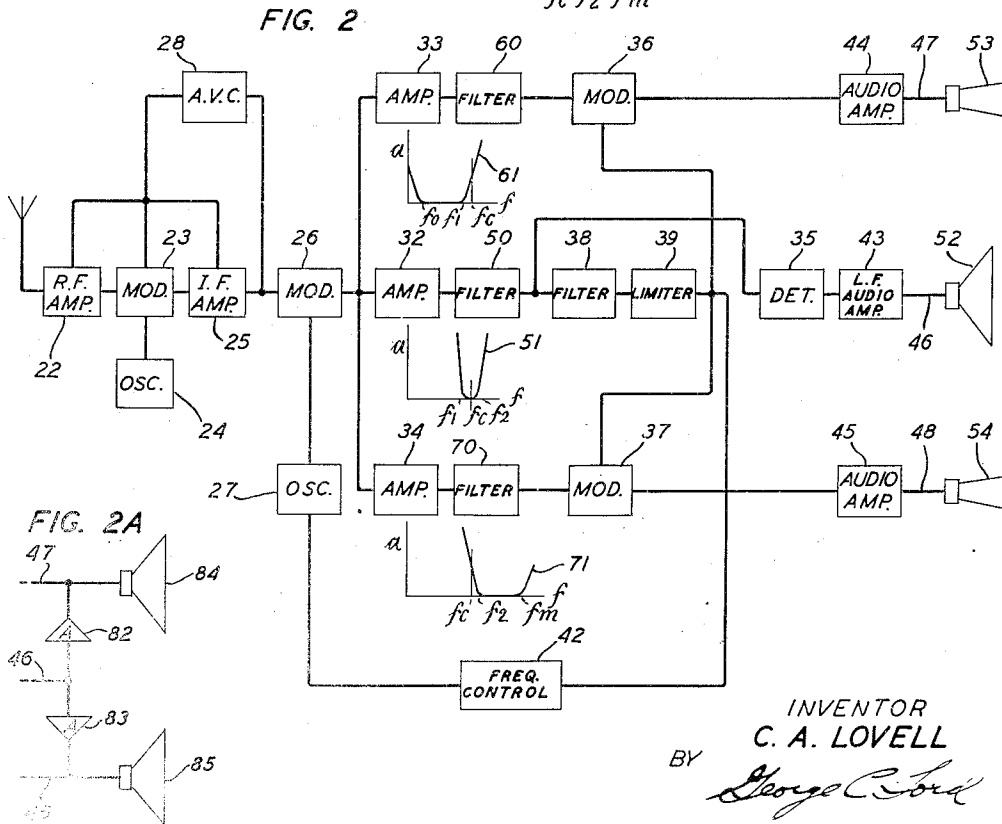 fc f2 fm
FIG. 2
28
A.V.C.
33
AMP.
60
FILTER
36
MOD.
44
AUDIO AMP.
47
53
a
61
fo f1 fc f
22
R.F. AMP.
23
MOD.
I.F. AMP.
25
OSC.
24
26
MOD.
32
AMP.
50
FILTER
38
FILTER
39
LIMITER
35
DET.
43
L.F. AUDIO AMP.
46
52
a
51
f1 fc f2
f
27
OSC.
34
AMP.
70
FILTER
37
MOD.
45
AUDIO AMP.
48
54
a
71
fc f2 fm f
42
FREQ. CONTROL
FIG. 2A
47
84
A
82
46
A
83
85
INVENTOR
C. A. LOVELL
BY
George C. Lord